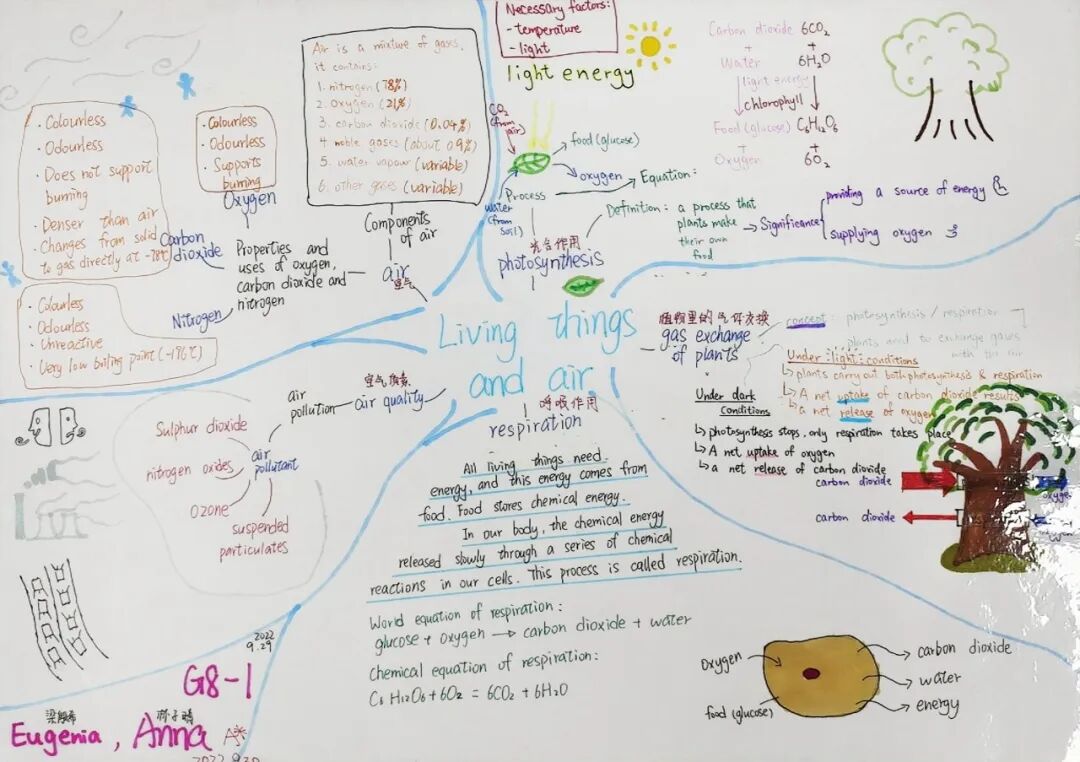 Living things
and air
Necessary factors:
- temperature
- light
light energy
CO₂
(from
air)
food (glucose)
oxygen
Process
water
(from
soil)
Equation:
Carbon dioxide 6CO₂
+ +
Water 6H₂O
light energy
chlorophyll
Food (glucose) C₆H₁₂O₆
+ +
Oxygen 6O₂
Definition: a process that
plants make
their own
food
Significance
providing a source of energy
supplying oxygen
光合作用
photosynthesis
Air is a mixture of gases.
it contains:
1. nitrogen (78%)
2. oxygen (21%)
3. carbon dioxide (0.04%)
4 noble gases (about 0.9%)
5. water vapour (variable)
6. other gases (variable)
Components
of air
air
空气
Properties and
uses of oxygen,
carbon dioxide and
nitrogen
· Colourless
· Odourless
· Supports
burning
Oxygen
· Colourless
· Odourless
· Does not support
burning
· Denser than air
· Changes from solid
to gas directly at -78℃
Carbon
dioxide
· Colourless
· Odourless
· Unreactive
· Very low boiling point (-196℃)
Nitrogen
air quality
air
pollution
air
pollutant
Sulphur dioxide
nitrogen oxides
Ozone
suspended
particulates
植物里的气体交换
gas exchange
of plants
concept: photosynthesis / respiration
plants need to exchange gases
with the air
Under light conditions
↳ plants carry out both photosynthesis & respiration
↳ A net uptake of carbon dioxide results
↳ a net release of oxygen
Under dark
Conditions
↳ photosynthesis stops, only respiration takes place
↳ A net uptake of oxygen
↳ a net release of carbon dioxide
carbon dioxide
carbon dioxide
呼吸作用
respiration
All living things need
energy, and this energy comes from
food. Food stores chemical energy.
In our body, the chemical energy
released slowly through a series of chemical
reactions in our cells. This process is called respiration.
World equation of respiration:
glucose + oxygen → carbon dioxide + water
Chemical equation of respiration:
C₆H₁₂O₆ + 6O₂ = 6CO₂ + 6H₂O
Oxygen
food (glucose)
carbon dioxide
water
energy
2022
9.29
G8-1
Eugenia, Anna
2022.9.30